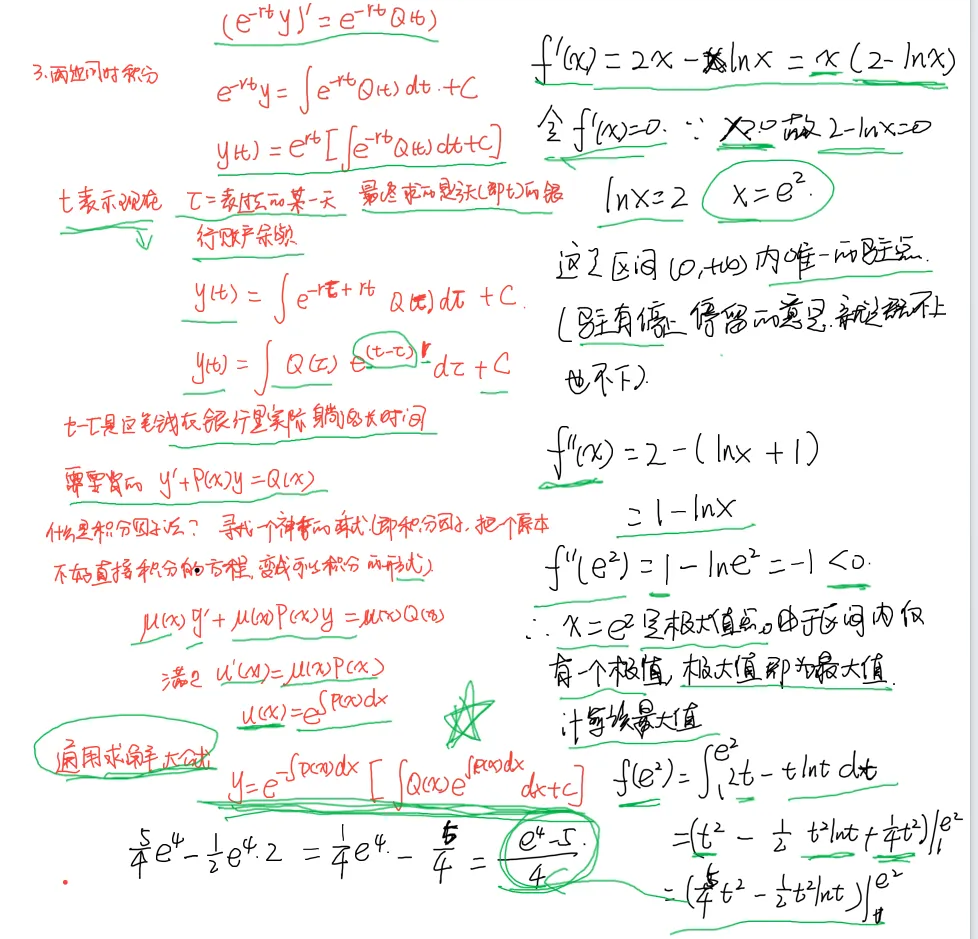 (e^{-rt}y)' = e^{-rt}Q(t)
3.两边同时积分
e^{-rt}y = ∫e^{-rt}Q(t)dt.+C
y(t) = e^{rt}[∫e^{-rt}Q(t)dt+C]
t表示现在 τ=表过去的某一天 最终求的是今天(即t)的银
行账户余额
y(t) = ∫e^{-rτ+rt} Q(τ)dτ + C.
y(t) = ∫ Q(τ) e^{(t-τ)r} dτ + C
t-τ是这笔钱在银行里实际躺的时间
需要背的 y'+P(x)y=Q(x)
什么是积分因子法? 寻找一个神奇的乘式(即积分因子,把一个原本
不好直接积分的方程,变成可以积分的形式)
μ(x)y'+μ(x)P(x)y=μ(x)Q(x)
满足 u'(x)=μ(x)P(x)
u(x)=e^{∫P(x)dx}
通用求解大公式
y=e^{-∫P(x)dx}[∫Q(x)e^{∫P(x)dx}dx+C]
5/4 e^4 - 1/2 e^4·2 = 1/4 e^4 - 5/4 = (e^4-5)/4
f'(x)=2x-xlnx=x(2-lnx)
令f'(x)=0. ∵ x>0 故 2-lnx=0
lnx=2 x=e^2.
这是区间(0,+∞)内唯一的驻点.
(驻有停止 停留的意思.就是既不上
也不下).
f''(x)=2-(lnx+1)
=1-lnx
f''(e^2)=1-lne^2=-1<0.
∴ x=e^2是极大值点。由于区间内仅
有一个极值,极大值即为最大值.
计算该最大值
f(e^2)=∫_1^{e^2} 2t-tlnt dt
=(t^2 - 1/2 t^2lnt+1/4 t^2)|_1^{e^2}
=(5/4 t^2 - 1/2 t^2lnt)|_1^{e^2}